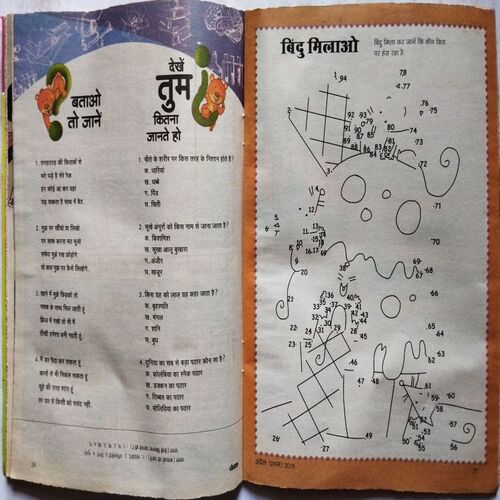 बताओ
तो जानें
1. तरहतरह की किताबों से
भरे पड़े हैं मेरे रैक
हर कोई आ कर यहां
पढ़ सकता है साथ में बैठ.
2. मुझ पर खींचो या लिखो
पर साफ करना मत भूलो
सफेद मुझे रख छोड़ोगे
तो कल मुझ पर कैसे लिखोगे.
3. खाने में मुझे छिड़को तो
नमक के साथ मिल जाती हूं
क्रिज में रखो तो भी मैं
तीखी हमेशा बनी रहती हूं.
4. मैं डर पैदा कर सकता हूं
कानों से भी निकल सकता हूं
चूहे की तरह शांत हूं
पर घर में किसी को पसंद नहीं.
देखें
तुम
कितना
जानते हो
1. चीते के शरीर पर किस तरह के निशान होते हैं?
क. धारियां
ख. धब्बे
ग. पिंड
घ. चित्ती
2. सूखे अंगूरों को किस नाम से जाना जाता है?
क. किशमिश
ख. सूखा आलू बुखारा
ग. अंजीर
घ. खजूर
3. किस ग्रह को लाल ग्रह कहा जाता है?
क. बृहस्पति
ख. मंगल
ग. शनि
घ. बुध
4. दुनिया का सब से बड़ा पठार कौन सा है?
क. कोलंबिया का स्नेक पठार
ख. डक्कन का पठार
ग. तिब्बत का पठार
घ. बोलिविया का पठार
26
चंपक
बिंदु मिलाओ
बिंदु मिला कर जानें कि कौन किस
पर हंस रहा है.
1. 94 78
77
2. 76
75
92 93 79
91 80 74
90 87 85
89 81 73
88 86 84 83 82
3 72
4 71
12
5 6 11 13 14
7 15 70
8 10 16 18
9 17 19 69
20 38 68
21 37 39 67
36 40 66
22 35 41
34 42 65
23 33 43 44
32 30 45
24 25 31 29 28 46 64
47 62 63
48 61
60
59 58
57
51 52
53
26 27 49 50 54
56 55
अप्रैल (प्रथम) 2019
27